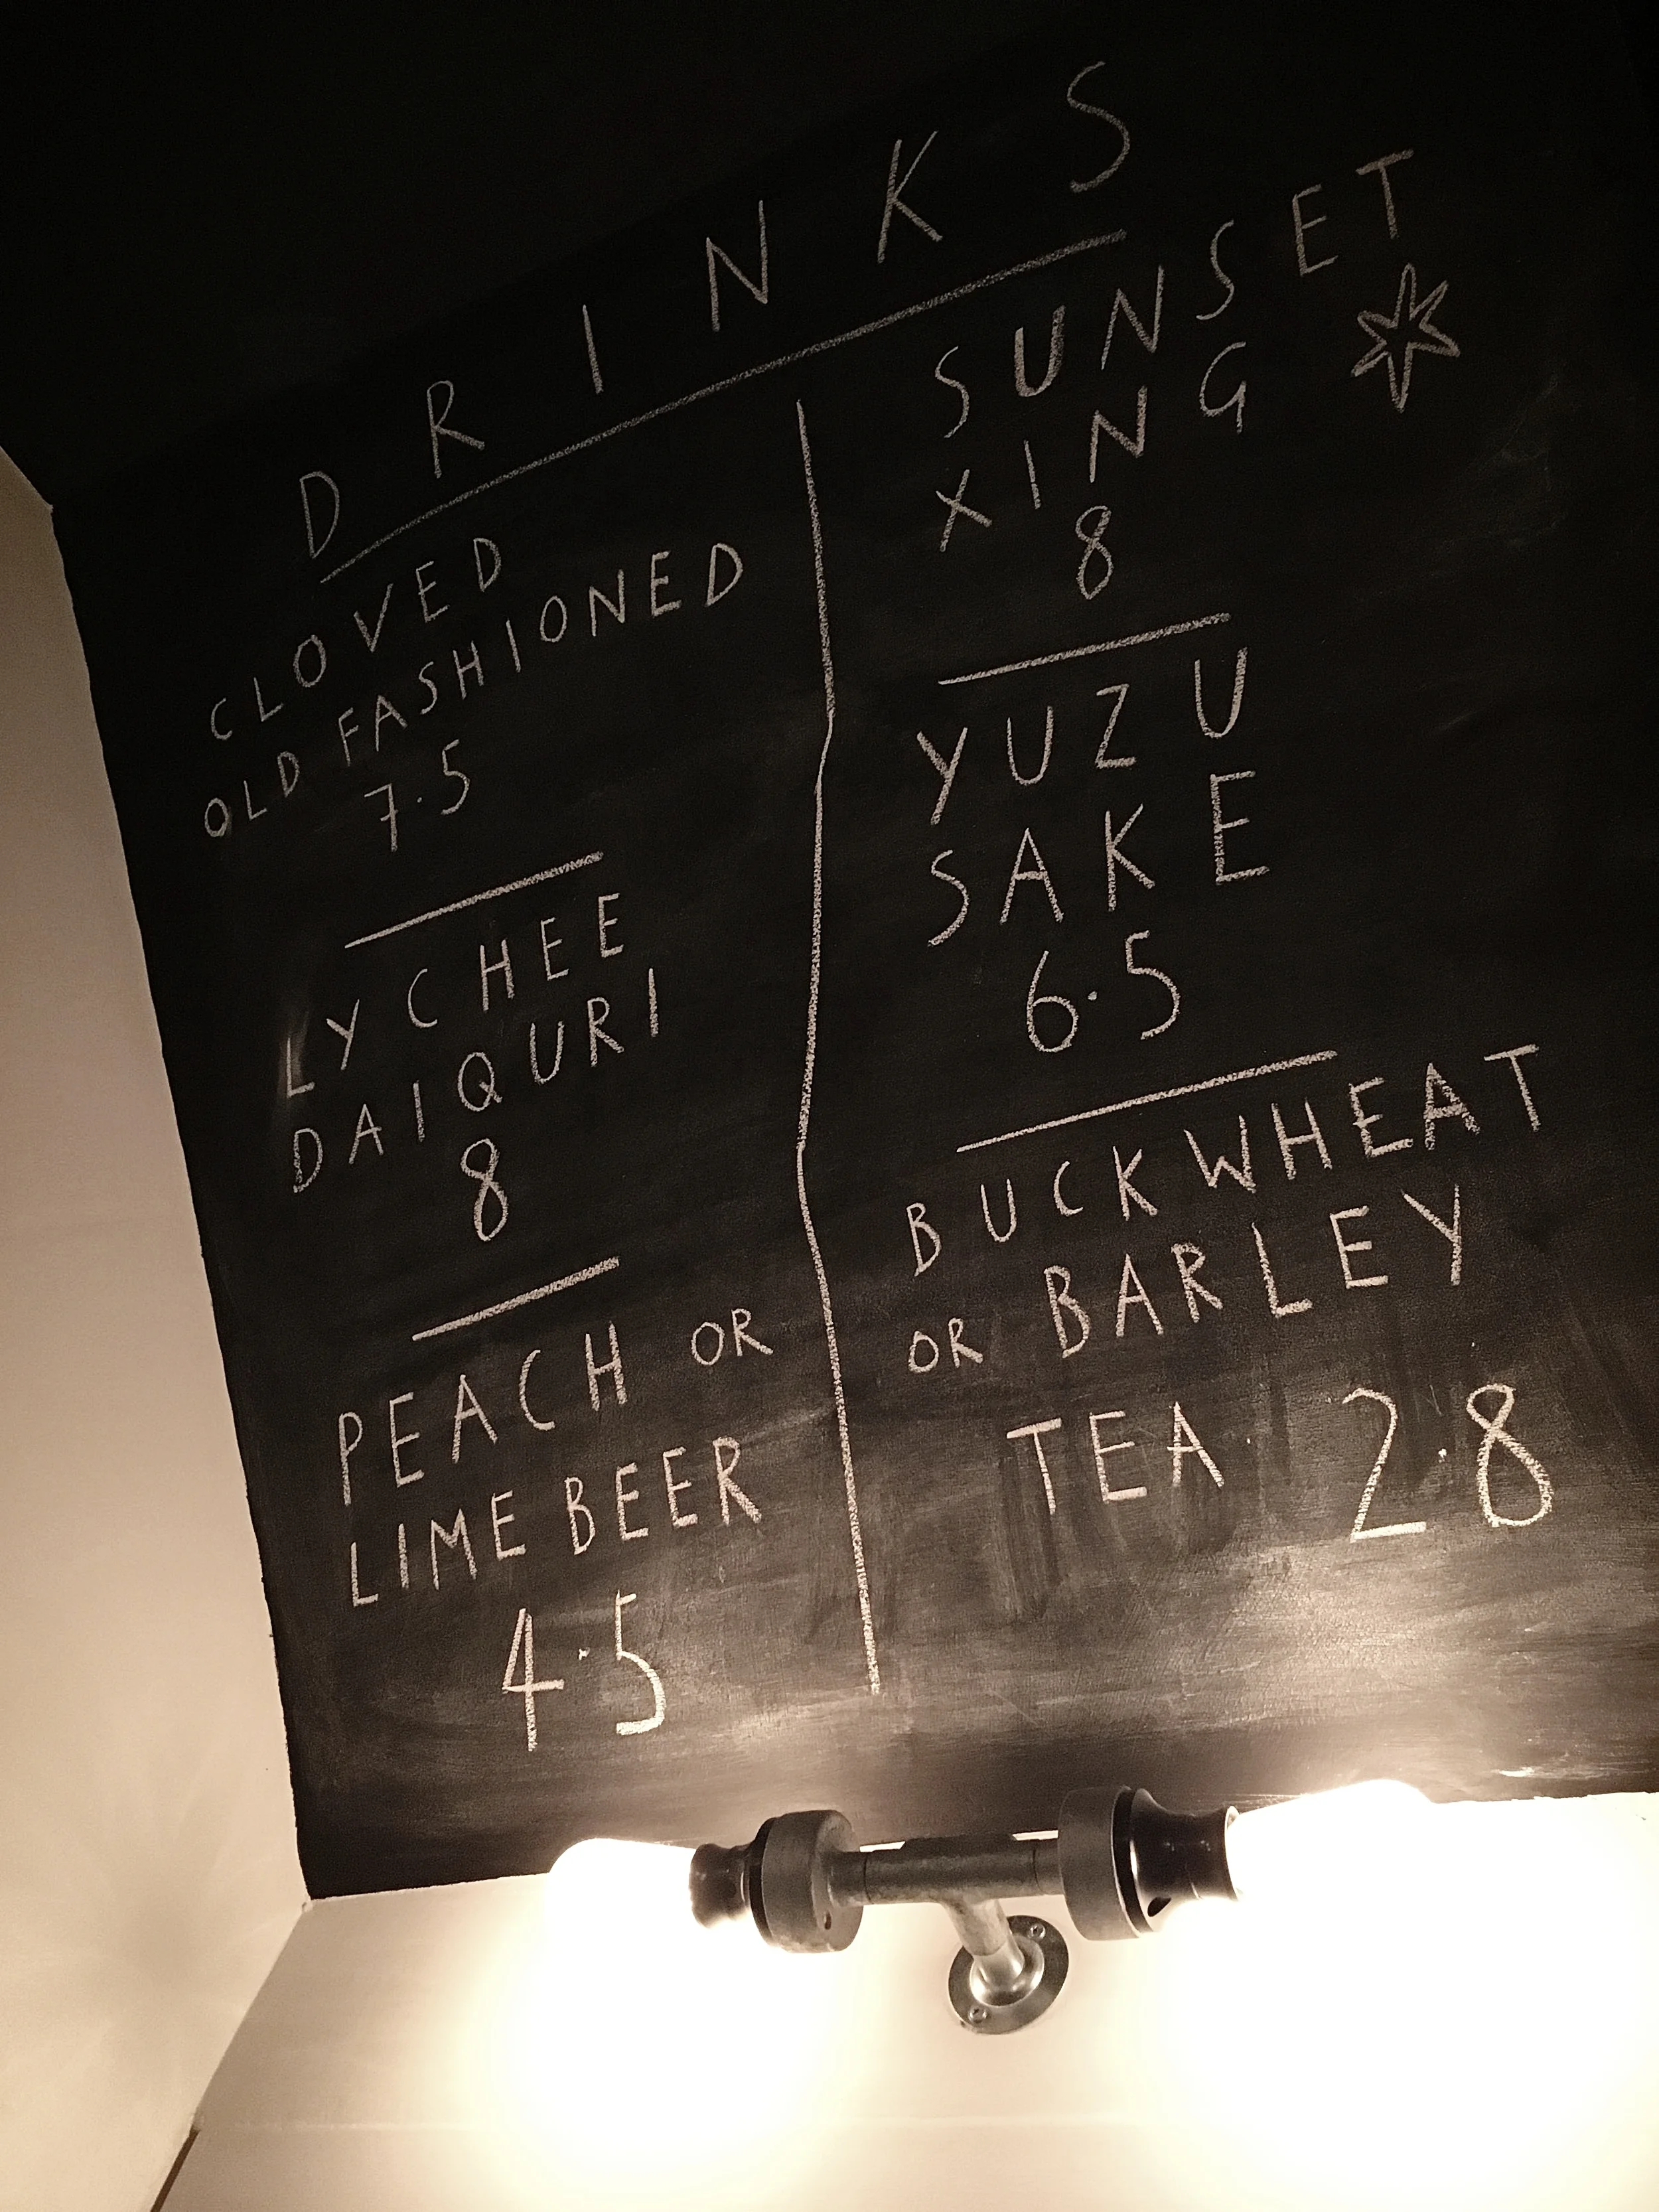 DRINKS
CLOVED
OLD FASHIONED
7.5
LYCHEE
DAIQURI
8
PEACH OR
LIME BEER
4.5
SUNSET
XING
8
YUZU
SAKE
6.5
BUCKWHEAT
OR BARLEY
TEA 2.8